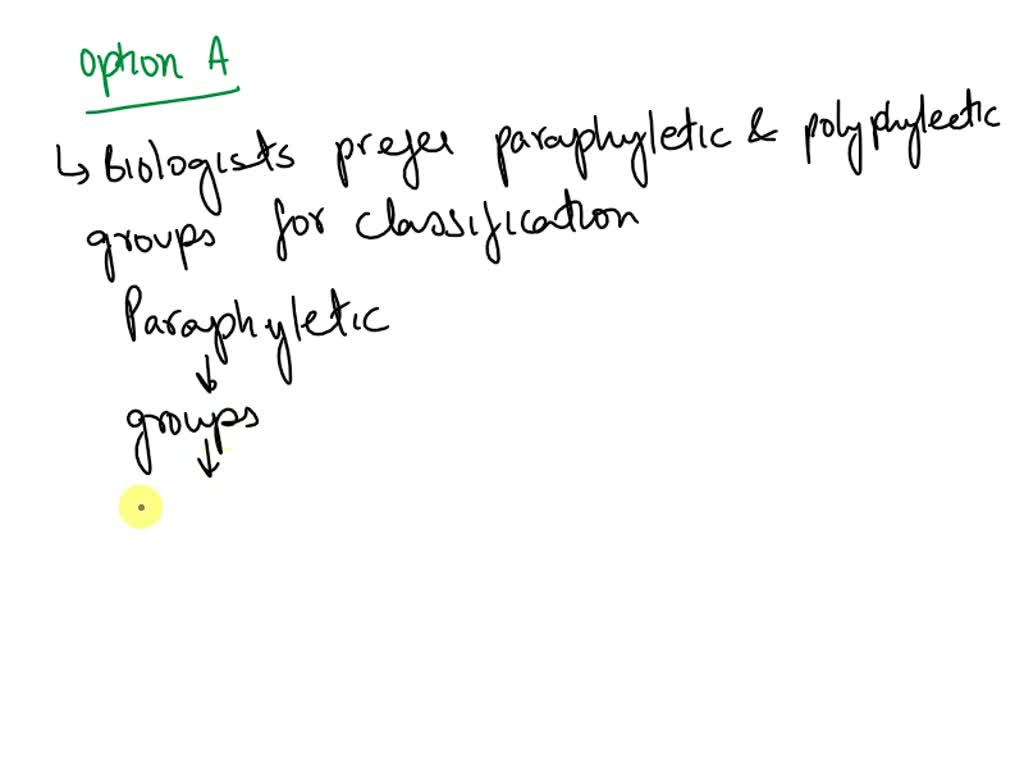 option A
↳ Biologists prefer paraphyletic & polyphyleetic
groups for classification
Paraphyletic
↓
groups
↓